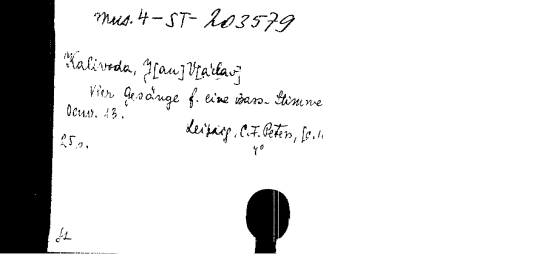 Mus. 4-ST-203579
Kalivoda, J[an] V[áclav]
Vier Gesänge f. eine Bass-Stimme
Oeuv. 13.
Leipzig, C.F. Peters,
4°
25 s.